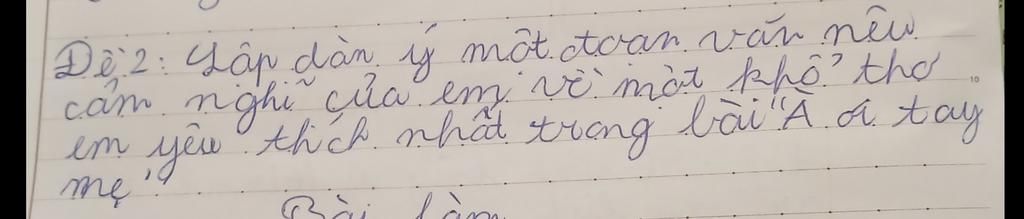 Đề 2: Lập dàn ý một đoạn văn nêu
cảm nghĩ của em về một khổ thơ
em yêu thích nhất trong bài "À ơi tay
mẹ"
Bài làm